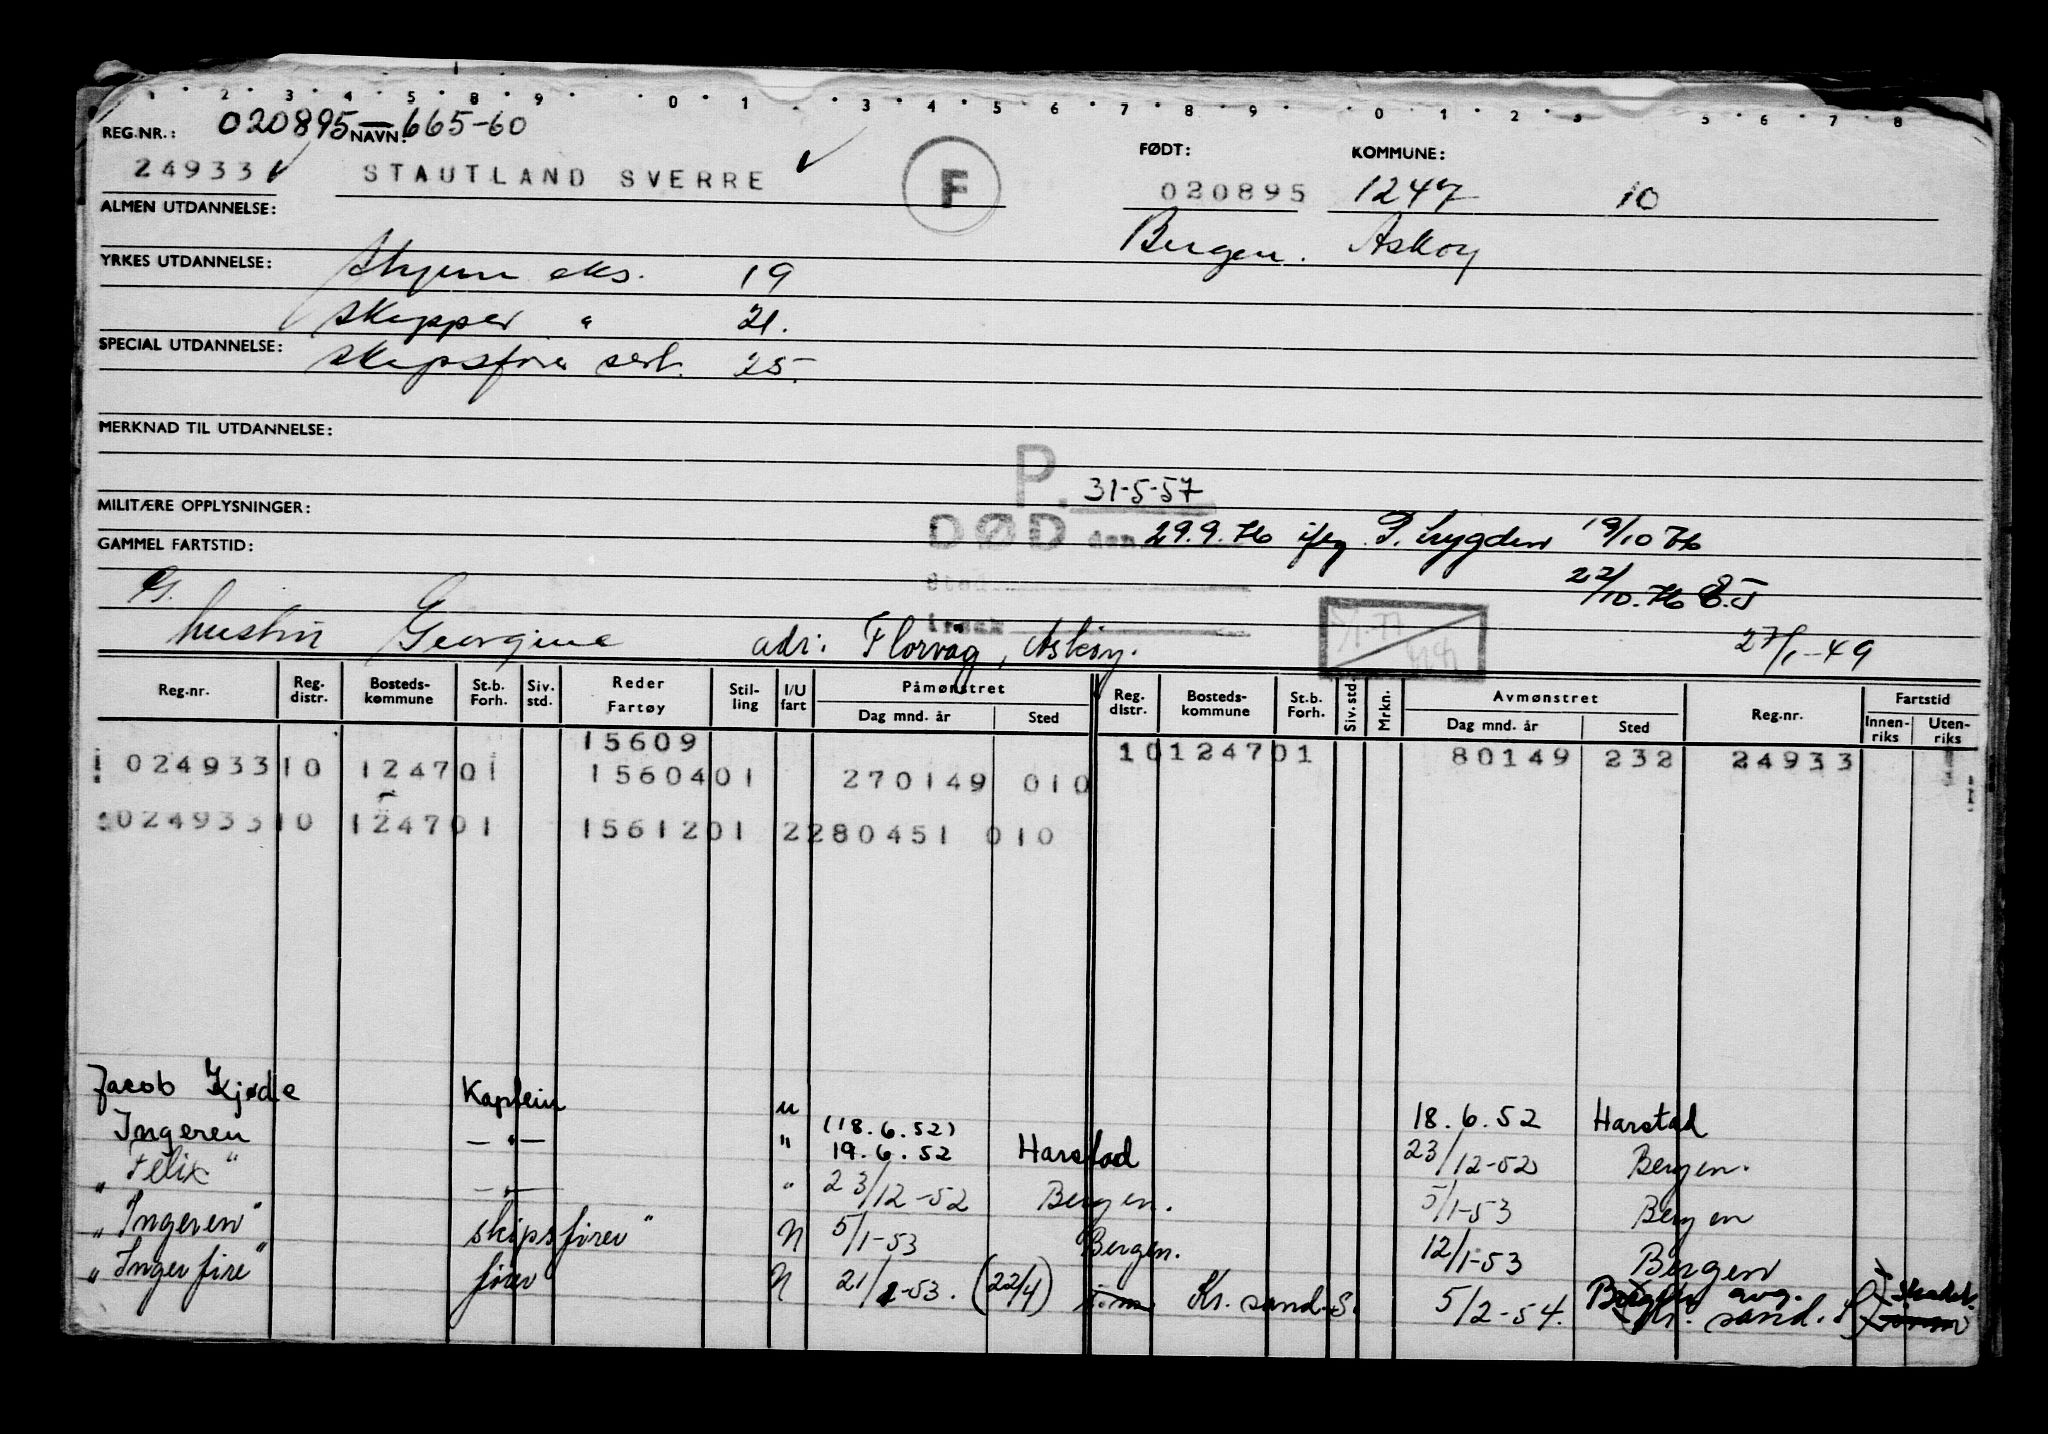 1 2 3 4 5 8 9 0 1 3 4 5 6 7 8 9 0 1 2 3 5 6 7 8
REG.NR.: 020895-665-60 NAVN:
FØDT: KOMMUNE:
24933 ✓ STAUTLAND SVERRE ✓ F 020895 1247 10
ALMEN UTDANNELSE: Bergen. Askøy
YRKES UTDANNELSE: Styrm eks. 19
Skipper " 21.
SPECIAL UTDANNELSE: Skipsfører sert. 25.
MERKNAD TIL UTDANNELSE:
P. 31-5-57
MILITÆRE OPPLYSNINGER:
DØD den 29.9.76 ifлg P. trygden 19/10 76
GAMMEL FARTSTID:
Sted 22/10.76 E.J
G.
hustru Georgine adr: Florvåg, Askøy. 27/1-49
årsak
Reg.nr. Reg. distr. Bosteds-kommune St.b. Forh. Siv. std. Reder Fartøy Stil-ling I/U fart Påmønstret Dag mnd. år Sted Reg. distr. Bosteds-kommune St.b. Forh. Siv. std. Mrkn. Avmønstret Dag mnd. år Sted Reg.nr. Fartstid Innen-riks Uten-riks
15609 10 1247 01 80149 232 24933
024933 10 1247 01 15604 01 270149 010
024933 10 1247 01 15612 01 2 280451 010
Jacob Kjøde Kaptein u (18.6.52) 18.6.52 Harstad
Ingeren — " — " 19.6.52 Harstad 23/12-52 Bergen.
"Felix" — " — " 23/12-52 Bergen. 5/1-53 Bergen
"Ingeren" skipsfører " N 5/1-53 Bergen. 12/1-53 Bergen
"Ingerfire" fører N 21/1-53. (22/4) Kr. sand. S. 5/2-54. Bergen avg. Kr. sand. S